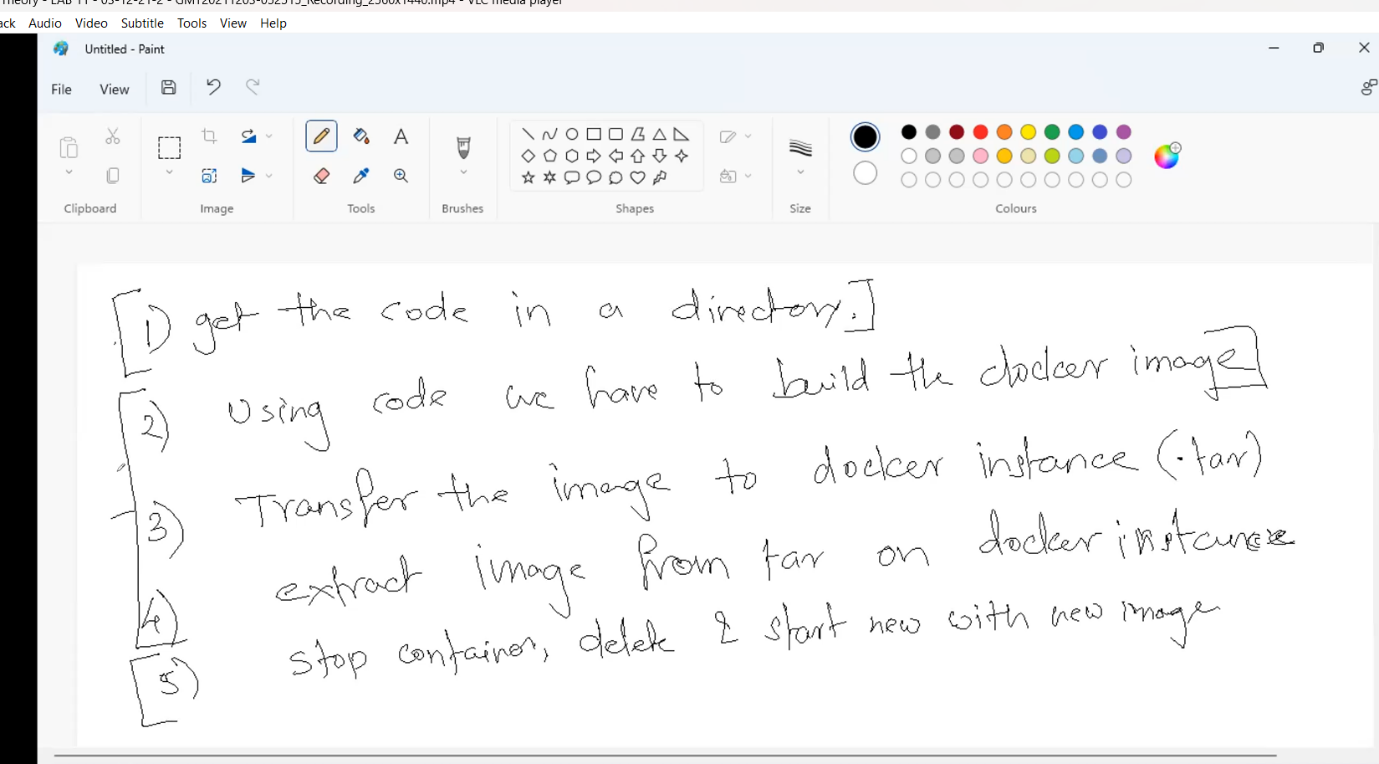 Theory - LAB 11 - 03-12-21-2 - GMT20211203-032515_Recording_2560x1440.mp4 - VLC media player
Audio Video Subtitle Tools View Help
Untitled - Paint
File View
Clipboard Image Tools Brushes Shapes Size Colours
[1) get the code in a directory.]
[2) Using code we have to build the docker image]
3) Transfer the image to docker instance (.tar)
4) extract image from tar on docker instance
[5) stop container, delete & start new with new image